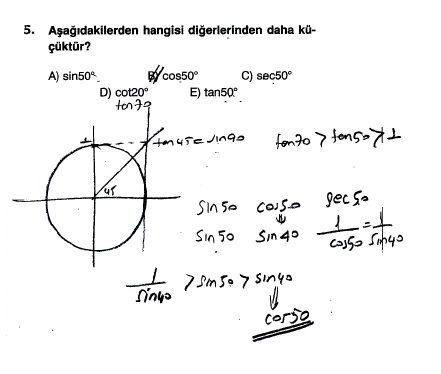 5. Aşağıdakilerden hangisi diğerlerinden daha kü-
çüktür?
A) sin50° B) cos50° C) sec50°
D) cot20° E) tan50°
tan70
1 tan45=sin90 tan70 > tan50 > 1
45
sin50 cos50 sec50
sin50 sin40 1/cos50 = 1/sin40
1/sin40 > sin50 > sin40
cos50